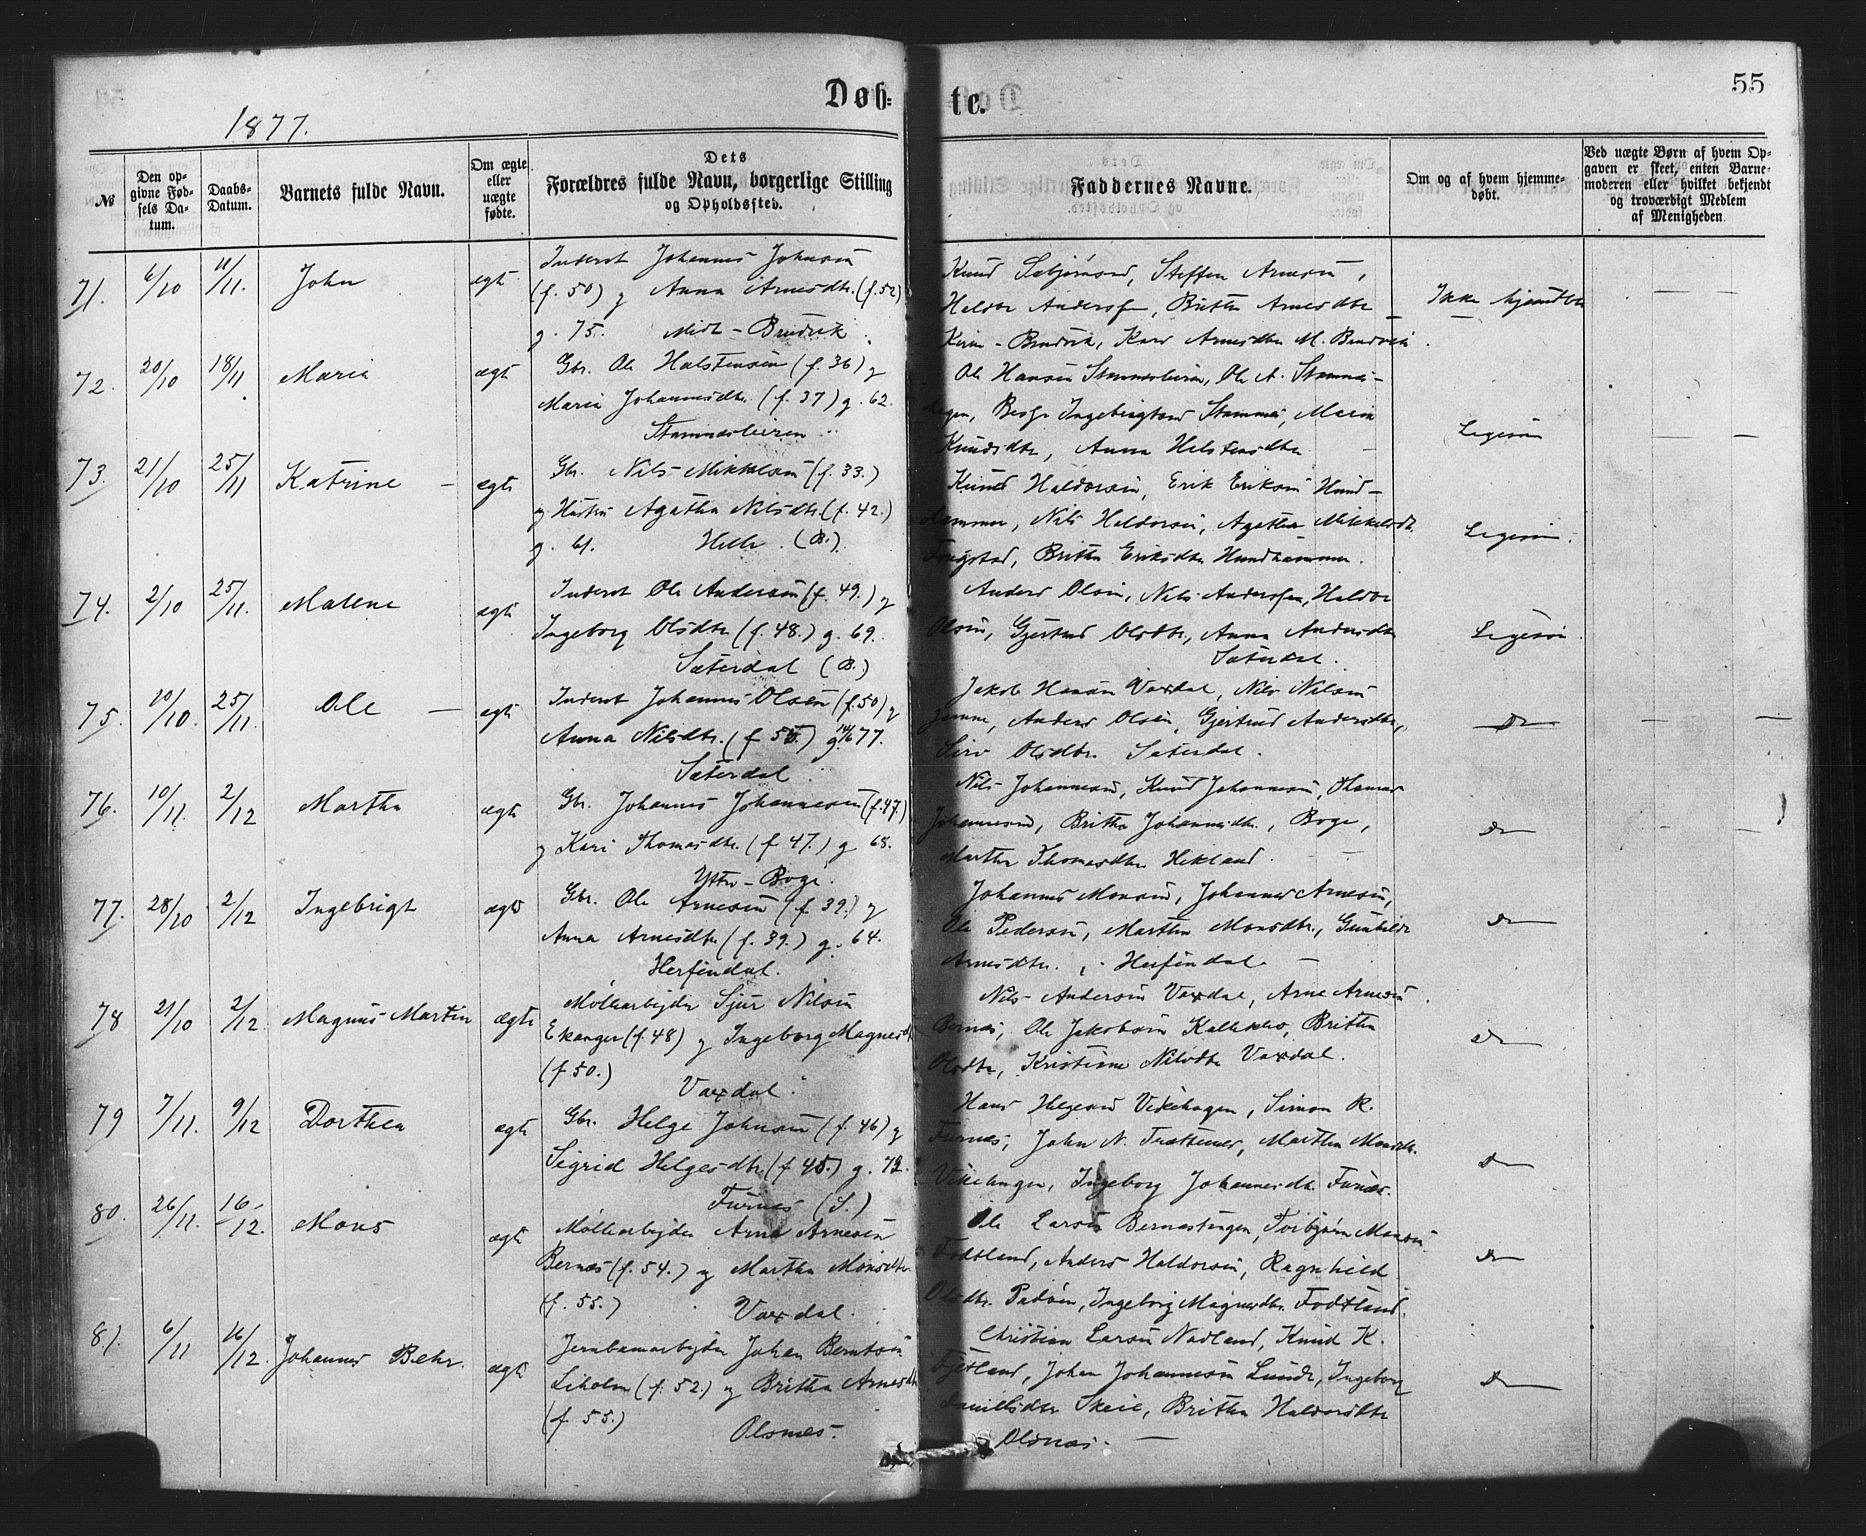 Døb=
te.
55
1877.
№
Den op-
givne Fød-
sels Da-
tum.
Daabs-
Datum.
Barnets fulde Navn.
Om ægte
eller
uægte
fødte.
Dets
Forældres fulde Navn, borgerlige Stilling
og Opholdssted.
Faddernes Navne.
Om og af hvem hjemme-
døbt.
Ved uægte Børn af hvem Op-
gaven er skeet, enten Barne-
moderen eller hvilket bekjendt
og troværdigt Medlem
af Menigheden.
71. 6/10 11/11. John ægte
Inderst Johannes Johnsen
(f. 50) og Anna Arnesdtr. (f. 52)
g. 75. Midt-Brudvik.
Knud Steffen Arnesen,
Haldor Andersen, Britha Arnesdtr
Brudvik, Kari Arnesdtr M. Brudvik
Ikke hjemdbt
72. 20/10 18/11 Maria ægte
Gbr. Ole Halstensen (f. 36) og
Maria Johannesdtr. (f. 37) g. 62.
Stamnesleiren
Ole Hansen Stamnesleiren, Ole A. Stamnes-
Ingebrigtsen Stamnes, Maria
Knudsdtr, Anna Helstensdtr
Ligesom
73. 21/10 25/11 Katrine - ægte
Gbr. Nils Mikkelsen (f. 33.)
og Hustru Agatha Nilsdtr. (f. 42.)
g. 61. Helle. (B.)
Knud Haldorsen, Erik Eriksen Hund-
hammer, Nils Haldorsen, Agatha Mikkelsdtr.
Britha Eriksdtr Hundhammer.
Ligesom.
74. 2/10 25/11. Malene ægte
Inderst Ole Andersen (f. 49.) og
Ingeborg Olsdtr (f. 48.) g. 69.
Sæterdal (B.)
Anders Olsen, Nils Andersen, Haldor
Olsen, Gjertrud Olsdtr., Anna Andersdtr
Sæterdal.
Ligesom
75. 10/10. 25/11. Ole - ægte
Inderst Johannes Olsen (f. 50) og
Anna Nilsdtr. (f. 55.) g. 77.
Sæterdal
Jakob Hansen Vaxdal, Nils Nilsen
Anders Olsen, Gjertrud Andersdtr.,
Siri Olsdtr. Sæterdal.
Do
76. 10/11. 2/12 Martha ægte
Gbr. Johannes Johannesen (f. 47.)
og Kari Thomasdtr. (f. 47.) g. 68.
Yttre-Boge.
Nils Johannesen, Knud Johannesen, Thomas
Johannesen, Britha Johannesdtr., Boge,
Martha Thomasdtr Hekland.
Do
77. 28/10 2/12 Ingebrigt ægte
Gbr. Ole Arnesen (f. 39.) og
Anna Arnesdtr. (f. 39.) g. 64.
Herfindal.
Johannes Monsen, Johannes Arnesen,
Ole Pedersen, Martha Monsdtr., Gunhilde
Arnesdtr., Herfindal -
Do
78 21/10 2/12. Magnus Martin ægte
Møllearbeider Sjur Nilsen
Ekanger (f. 48) og Ingeborg Magnesdtr
(f. 50.) Vaxdal.
Nils Andersen Vaxdal, Arne Arnesen
Bernæs, Ole Jakobsen Kallekleo, Britha
Olsdtr, Kristine Nilsdtr Vaxdal.
Do
79 7/11. 9/12 Dorthea ægte
Gbr. Helge Johnsen (f. 46) og
Sigrid Helgesdtr. (f. 45.) g. 72.
Furnes (S.)
Hans Helgesen Vikehagen, Simon R.
Furnæs, John N. Trættenes, Martha Monsdtr.
Vikehagen, Ingeborg Johannesdtr Furnæs.
Do
80. 26/11. 16/12. Mons ægte
Møllearbeider Arne Arnesen
Bernæs (f. 54.) og Martha Monsdtr
(f. 55.) Vaxdal.
Ole Larsen Bernæstangen, Torbjørn Monsen
Fodtland, Anders Haldorsen, Ragnhild
Olsdtr. Ingeborg Magnesdtr. Fodtland.
Do
81. 6/11 16/12. Johannes Behr. ægte
Jernbanearbeider Johan Berntsen
Liholm (f. 52.) og Britha Arnesdtr
(f. 55.) Olsnes.
Christian Larsen Nodland, Knud K.
Fjetland, Johan Johannesen Lunde, Ingeborg
Danielsdtr Skeie, Britha Haldorsdtr
Olsnæs. -
Do